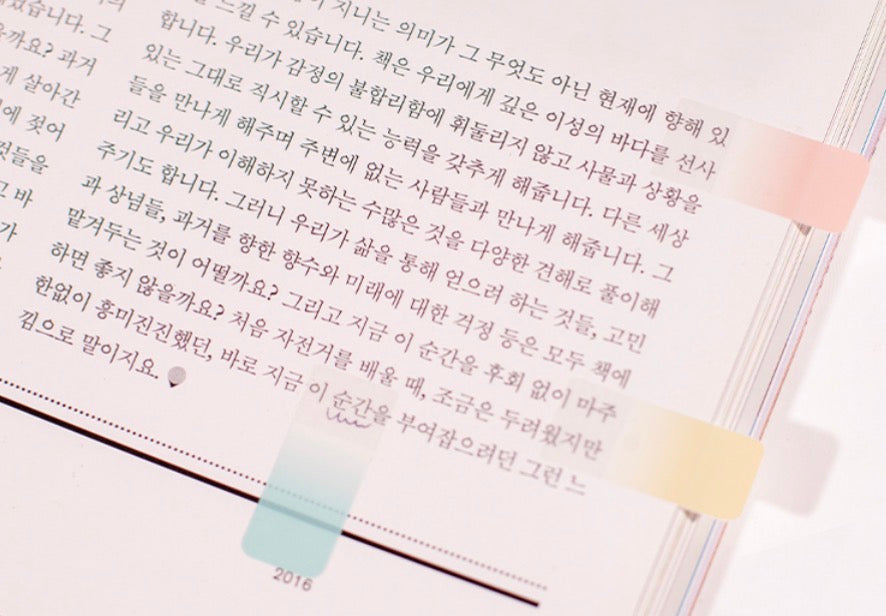 그
과거
게 살아간
에 젖어
것들을
지니는 의미가 그 무엇도 아닌 현재에 향해 있
느낄 수 있습니다. 책은 우리에게 깊은 이성의 바다를 선사
합니다. 우리가 감정의 불합리함에 휘둘리지 않고 사물과 상황을
있는 그대로 직시할 수 있는 능력을 갖추게 해줍니다. 다른 세상
들을 만나게 해주며 주변에 없는 사람들과 만나게 해줍니다. 그
리고 우리가 이해하지 못하는 수많은 것을 다양한 견해로 풀이해
주기도 합니다. 그러니 우리가 삶을 통해 얻으려 하는 것들, 고민
과 상념들, 과거를 향한 향수와 미래에 대한 걱정 등은 모두 책에
맡겨두는 것이 어떨까요? 그리고 지금 이 순간을 후회 없이 마주
하면 좋지 않을까요? 처음 자전거를 배울 때, 조금은 두려웠지만
한없이 흥미진진했던, 바로 지금 이 순간을 부여잡으려던 그런 느
낌으로 말이지요.
2016